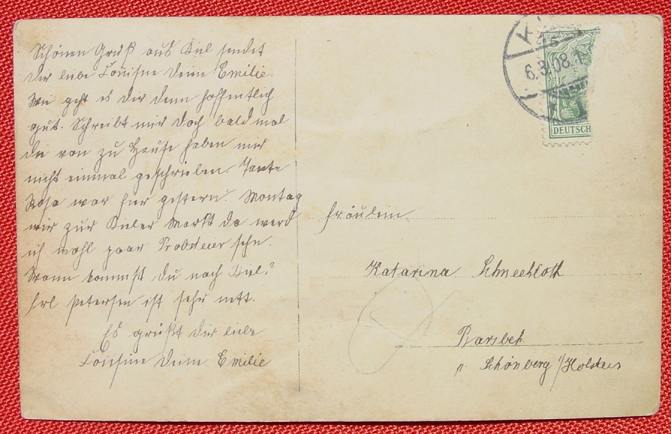 Schönen Gruß aus Kiel sendet
der liebe Cousine deine Emilie
Wie geht es dir denn hoffentlich
gut. Schreibt mir doch bald mal
die von zu Heuse haben mir
nicht einmal geschrieben. Tante
Rosa war hier gestern. Montag
wir zur Kieler Markt da werd
ich wohl paar sehn.
Wann kommst du nach Kiel?
Frl Petersen ist sehr nett.
Es grüßt die liebe
Cousine deine Emilie
6.3.08.1
DEUTSCH
Fräulein
Katarina Schneekloth
Barsbek
p. Schönberg /Holstein